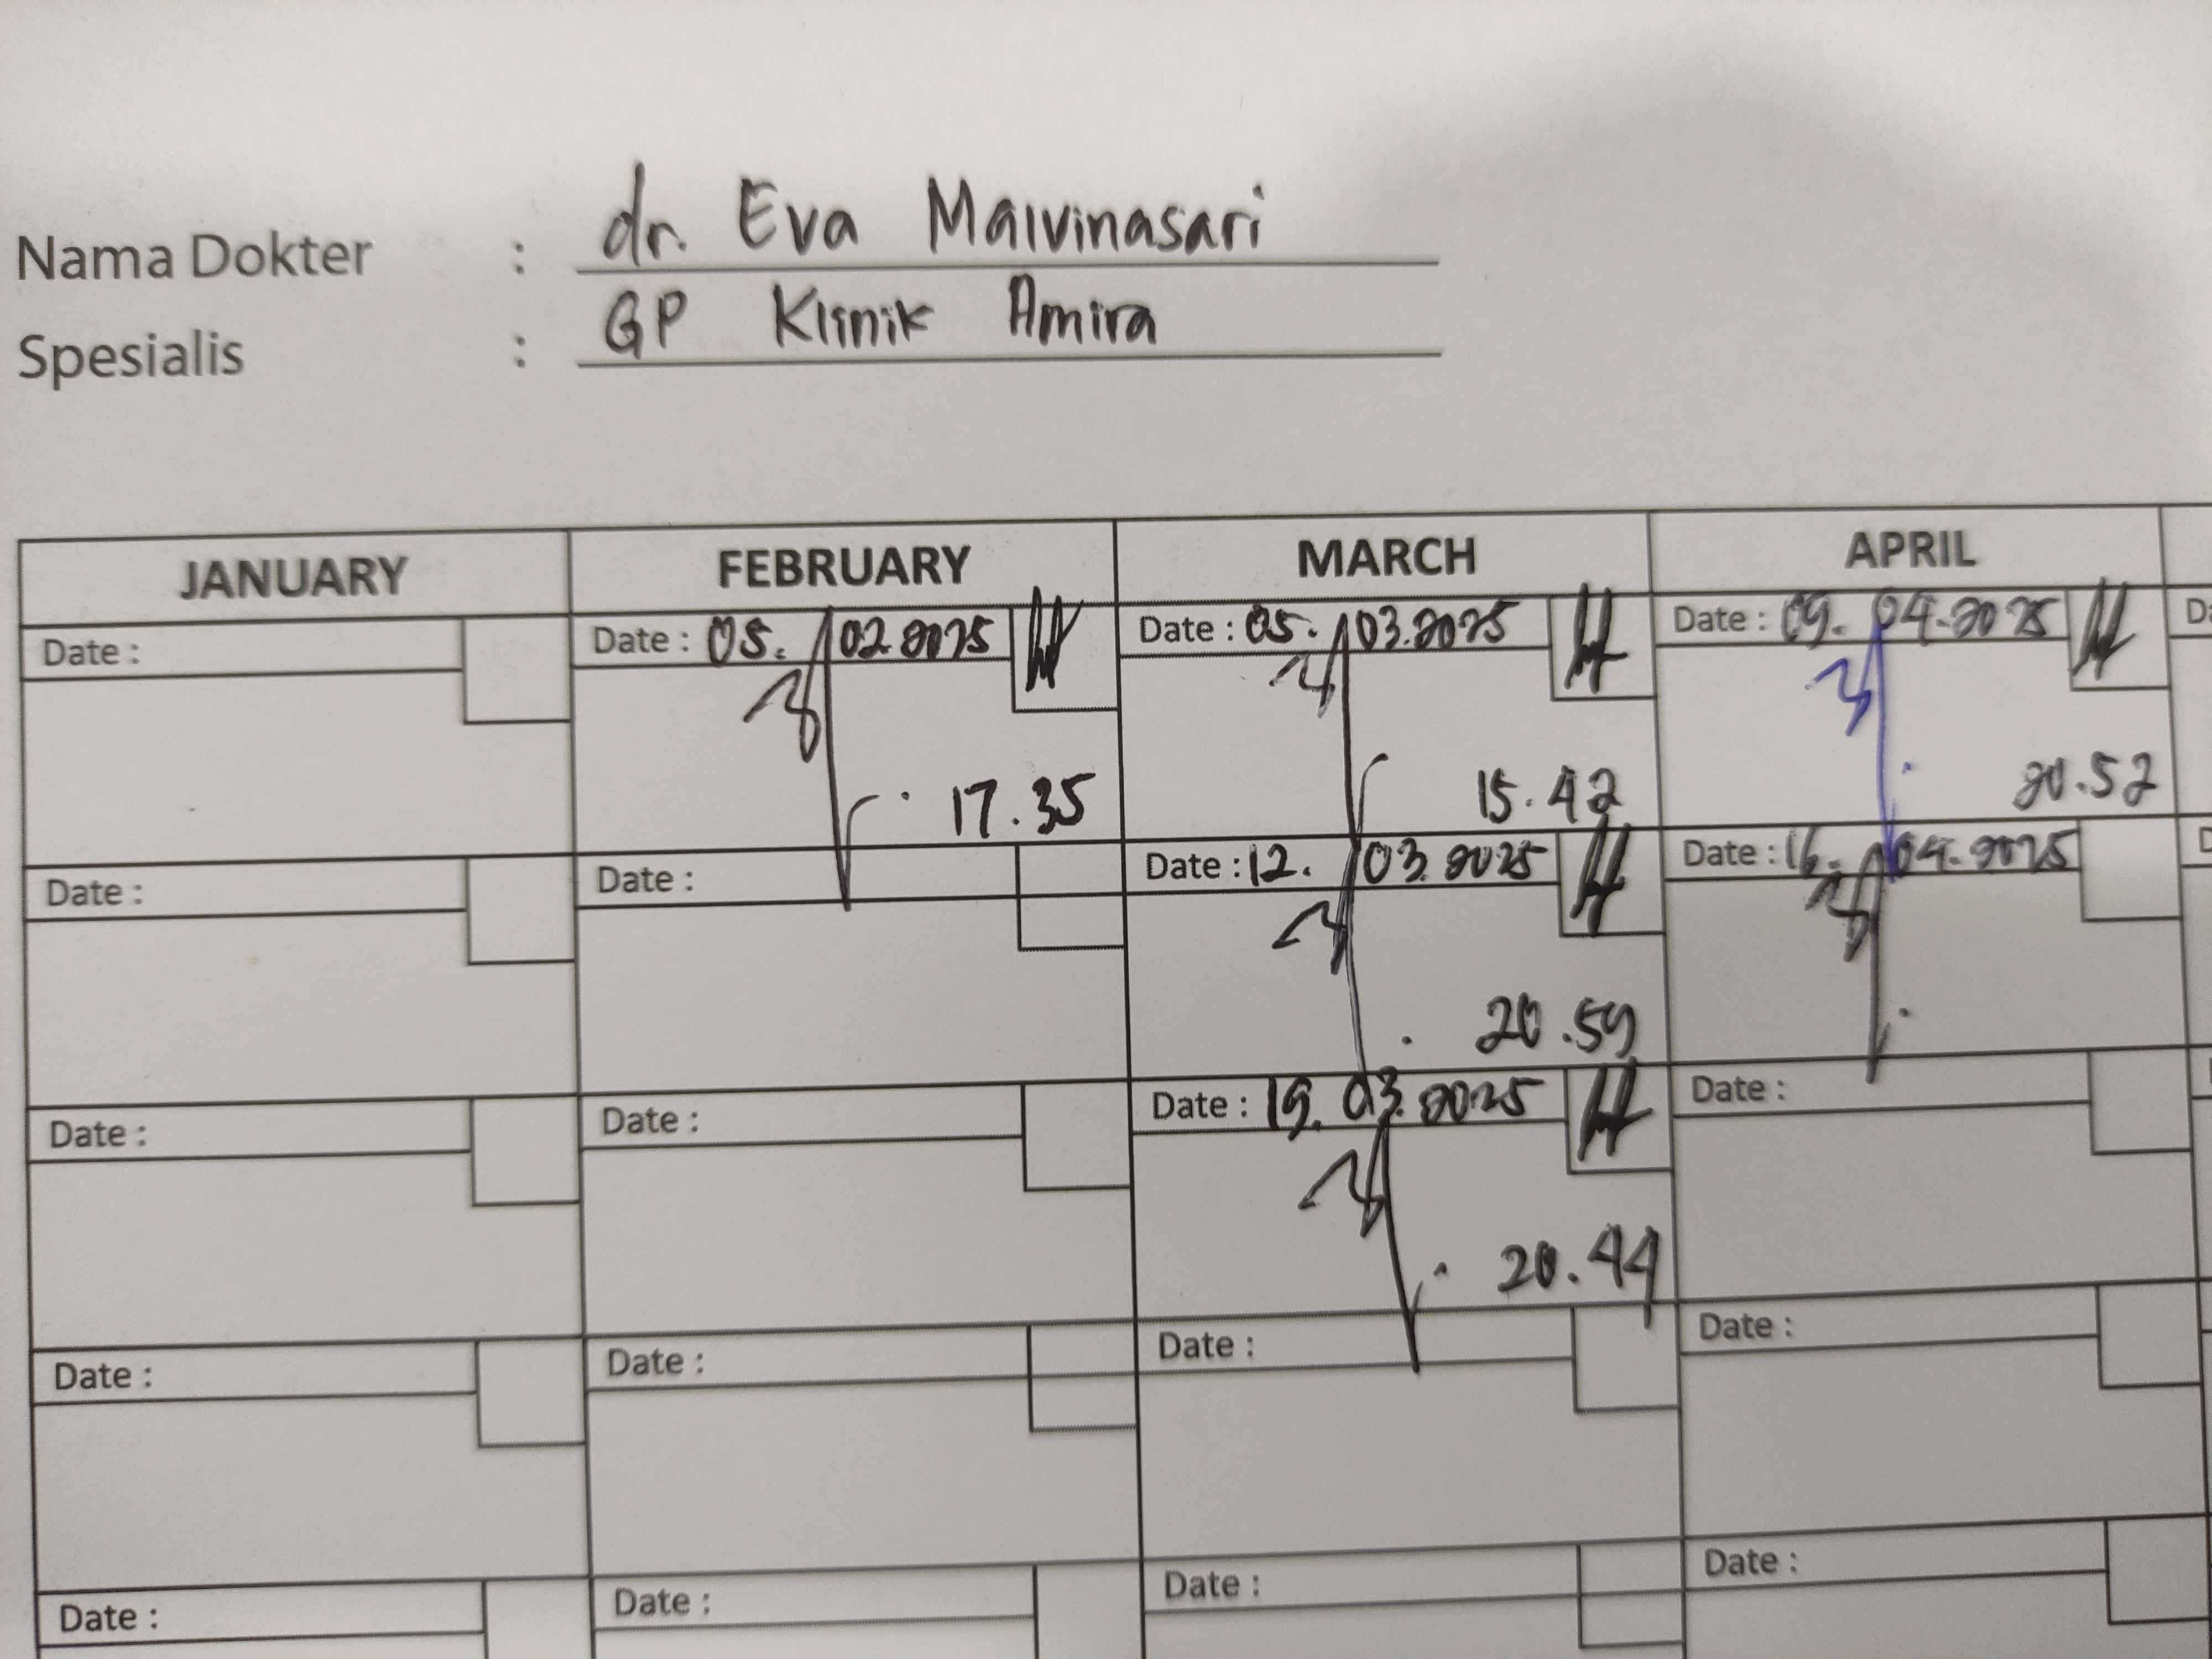 Nama Dokter : dr. Eva Malvinasari
Spesialis : GP Klinik Amira
JANUARY FEBRUARY MARCH APRIL
Date : Date : 05. 02.2025 Date : 05. 03.2025 Date : 09. 04.2025
17.35 15.42 20.52
Date : Date : Date : 12. 03.2025 Date : 16. 04.2025
20.59
Date : Date : Date : 19. 03.2025 Date :
20.44
Date : Date : Date : Date :
Date : Date : Date : Date :